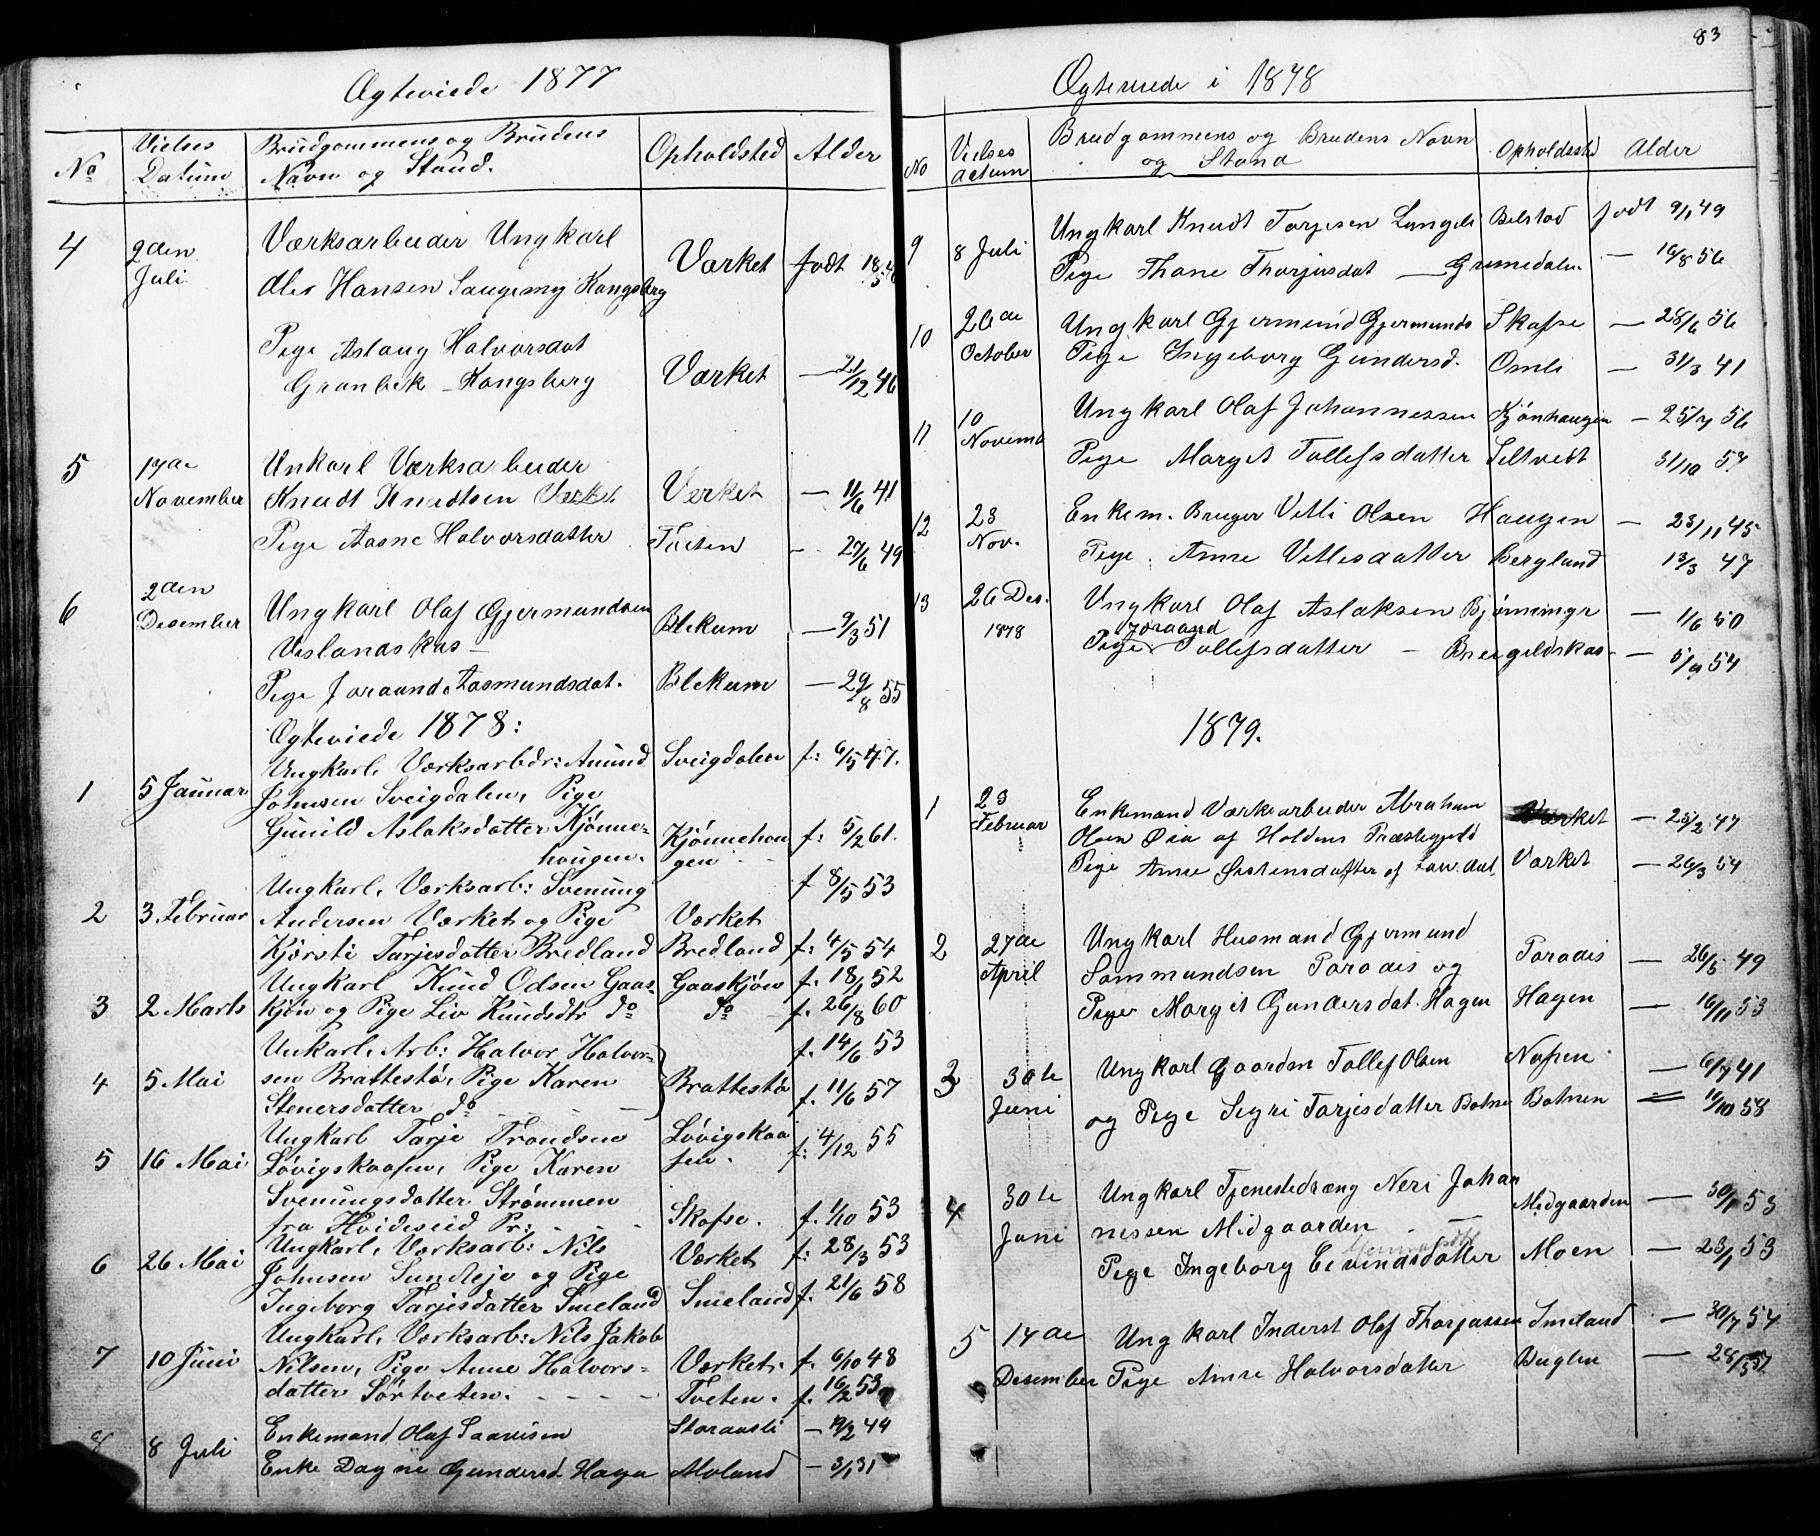 Ægteviede 1877
No
Vielses Datum
Brudgommens og Brudens Navn og Stand.
Opholdsted
Alder
4 2den Juli
Værksarbeider Ungkarl
Hansen Saugemy Kongsberg Værket født 18/5 48
Pige Aslaug Halvorsdat
Granbek Kongsberg Værket — 21/12 46
5 17de November
Unkarl Værksarbeider
Knudt Knudtsen Værket Værket — 11/6 41
Pige Aasne Halvorsdatter Tveten - 27/6 49
6 2den Desember
Ungkarl Olaf Gjermundsen Blekum — 9/3 51
Veslandskas —
Pige Joraand Aasmundsdat. Blekum — 29/8 55
Ægteviede 1878:
1 5 Januar
Ungkarl, Værksarbdr: Amund Sveigdalen f: 6/5 47.
Johnsen Sveigdalen, Pige
Gunild Aslaksdatter Kjønne- Kjønnehou f: 5/2 61.
hougen. gen
Ungkarl, Værksarb: Svenung f 8/5 53
2 3. Februar Andersen Værket og Pige Værket
Kjørsti Tarjesdatter Bredland Bredland f: 4/5 54
Ungkarl Knud Odsen Gaas- Gaaskjøn f. 18/1 52
3 2 Marts kjøn og Pige Liv Knudsdtr do do f. 26/8 60
Unkarl, Arb: Halvor Halvor- f. 14/6 53
4 5 Mai sen Brattestø, Pige Karen Brattestø
Stenersdatter do f. 11/6 57
Ungkarl Tarje Trondsen Løvigskaa f: 4/12 55
5 16 Mai Løvigskaasen, Pige Karen sen.
Svenungsdatter Strømmen
fra Hvideseid Pr: Skafse. f. 1/10 53
Ungkarl, Værksarb: Nils Værket f: 28/3 53
6 26 Mai Johnsen Sundleje og Pige
Ingeborg Tarjesdatter Smeland Smeland f. 21/6 58
Ungkarl, Værksarb: Nils Jakob
7 10 Juni Nilsen, Pige Anne Halvors- Værket. f. 6/10 48
datter Sørtveten. Tveten. f. 16/2 53
8 8 Juli Enkemand Olaf Saavesen Storaasli — 19/2 44
Enke Dagne Gundersd. Haga Moland — 3/1 31
83
Ægteviede i 1878
No
Vielses
Brudgommens og Brudens Navn
og Stand
Opholdssted
Alder
9 8 Juli Ungkarl Knudt Tarjesen Langeli Belstad født 9/1 49
Pige Thone Thorjusdat — Grimedalen — 16/8 56
10 26de October Ungkarl Gjermund Gjermunds Skafse — 28/6 56
Pige Ingeborg Gundersd. Omli — 31/3 41
11 10 Novemb Ungkarl Olaf Johannessen Kjønhaugen — 25/7 56
Pige Margit Tollefsdatter Seltvedt 31/10 57
12 23 Nov. Enkem. Bruger Vetli Olsen Haugen — 23/11 45
Pige Anne Vetlesdatter Bergland 13/3 47
13 26 Des. 1878 Ungkarl Olaf Aslaksen Bjørnningr — 1/6 50
Joraand
Pige Tollefsdatter — Breigildskas — 5/9 54
1879.
1 23 Februar Enkemand Værksarbeider Abraham Værket — 25/2 47
Olsen Øia af Holdens Præstegjeld
Pige Anne Østensdatter af Laurdal, Værket — 26/3 54
2 27de April Ungkarl Husmand Gjermund
Sammundsen Paradis og Paradis — 26/5 49
Pige Margit Gundersdat. Hagen Hagen — 16/11 53
3 30te Juni Ungkarl Gaardm Tollef Olsen Næsen — 6/7 41
og Pige Sigri Tarjesdatter Botnen Botnen — 1/10 58
4 30te Juni Ungkarl Tjenestedræng Neri Johan Midgaarden — 30/1 53
nessen Midgaarden
Pige Ingeborg Eivindsdatter Moen — 23/1 53
5 14de Desember Ungkarl Inderst Olaf Thorjussen Smeland — 30/7 54
Pige Anne Halvorsdatter Buglen — 28/5 57